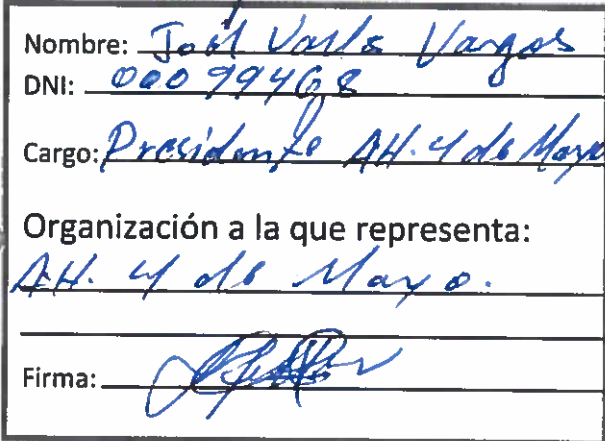 Nombre: Joél Varls Vargas
DNI: 00099468
Cargo: Presidente AH. 4 de Mayo
Organización a la que representa:
AH. 4 de Mayo.
Firma: